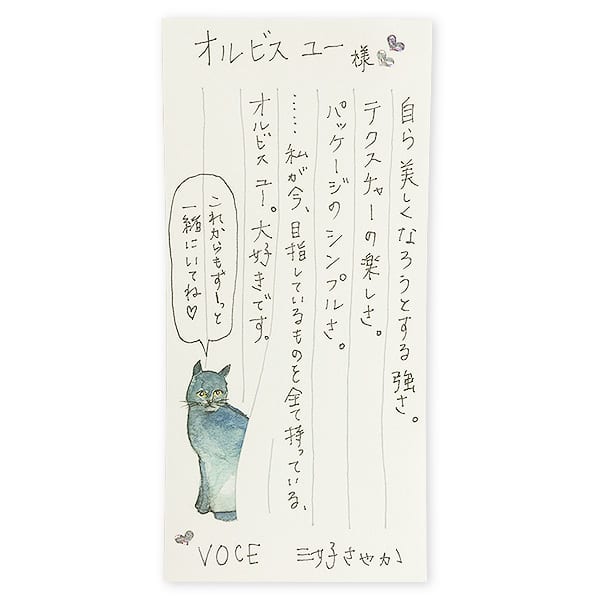 オルビス ユー様
自ら美しくなろうとする強さ。
テクスチャーの楽しさ。
パッケージのシンプルさ。
……私が今、目指しているものを全て持っている、
オルビス ユー。大好きです。
これからもずーっと
一緒にいてね♡
VOCE 三好さやか